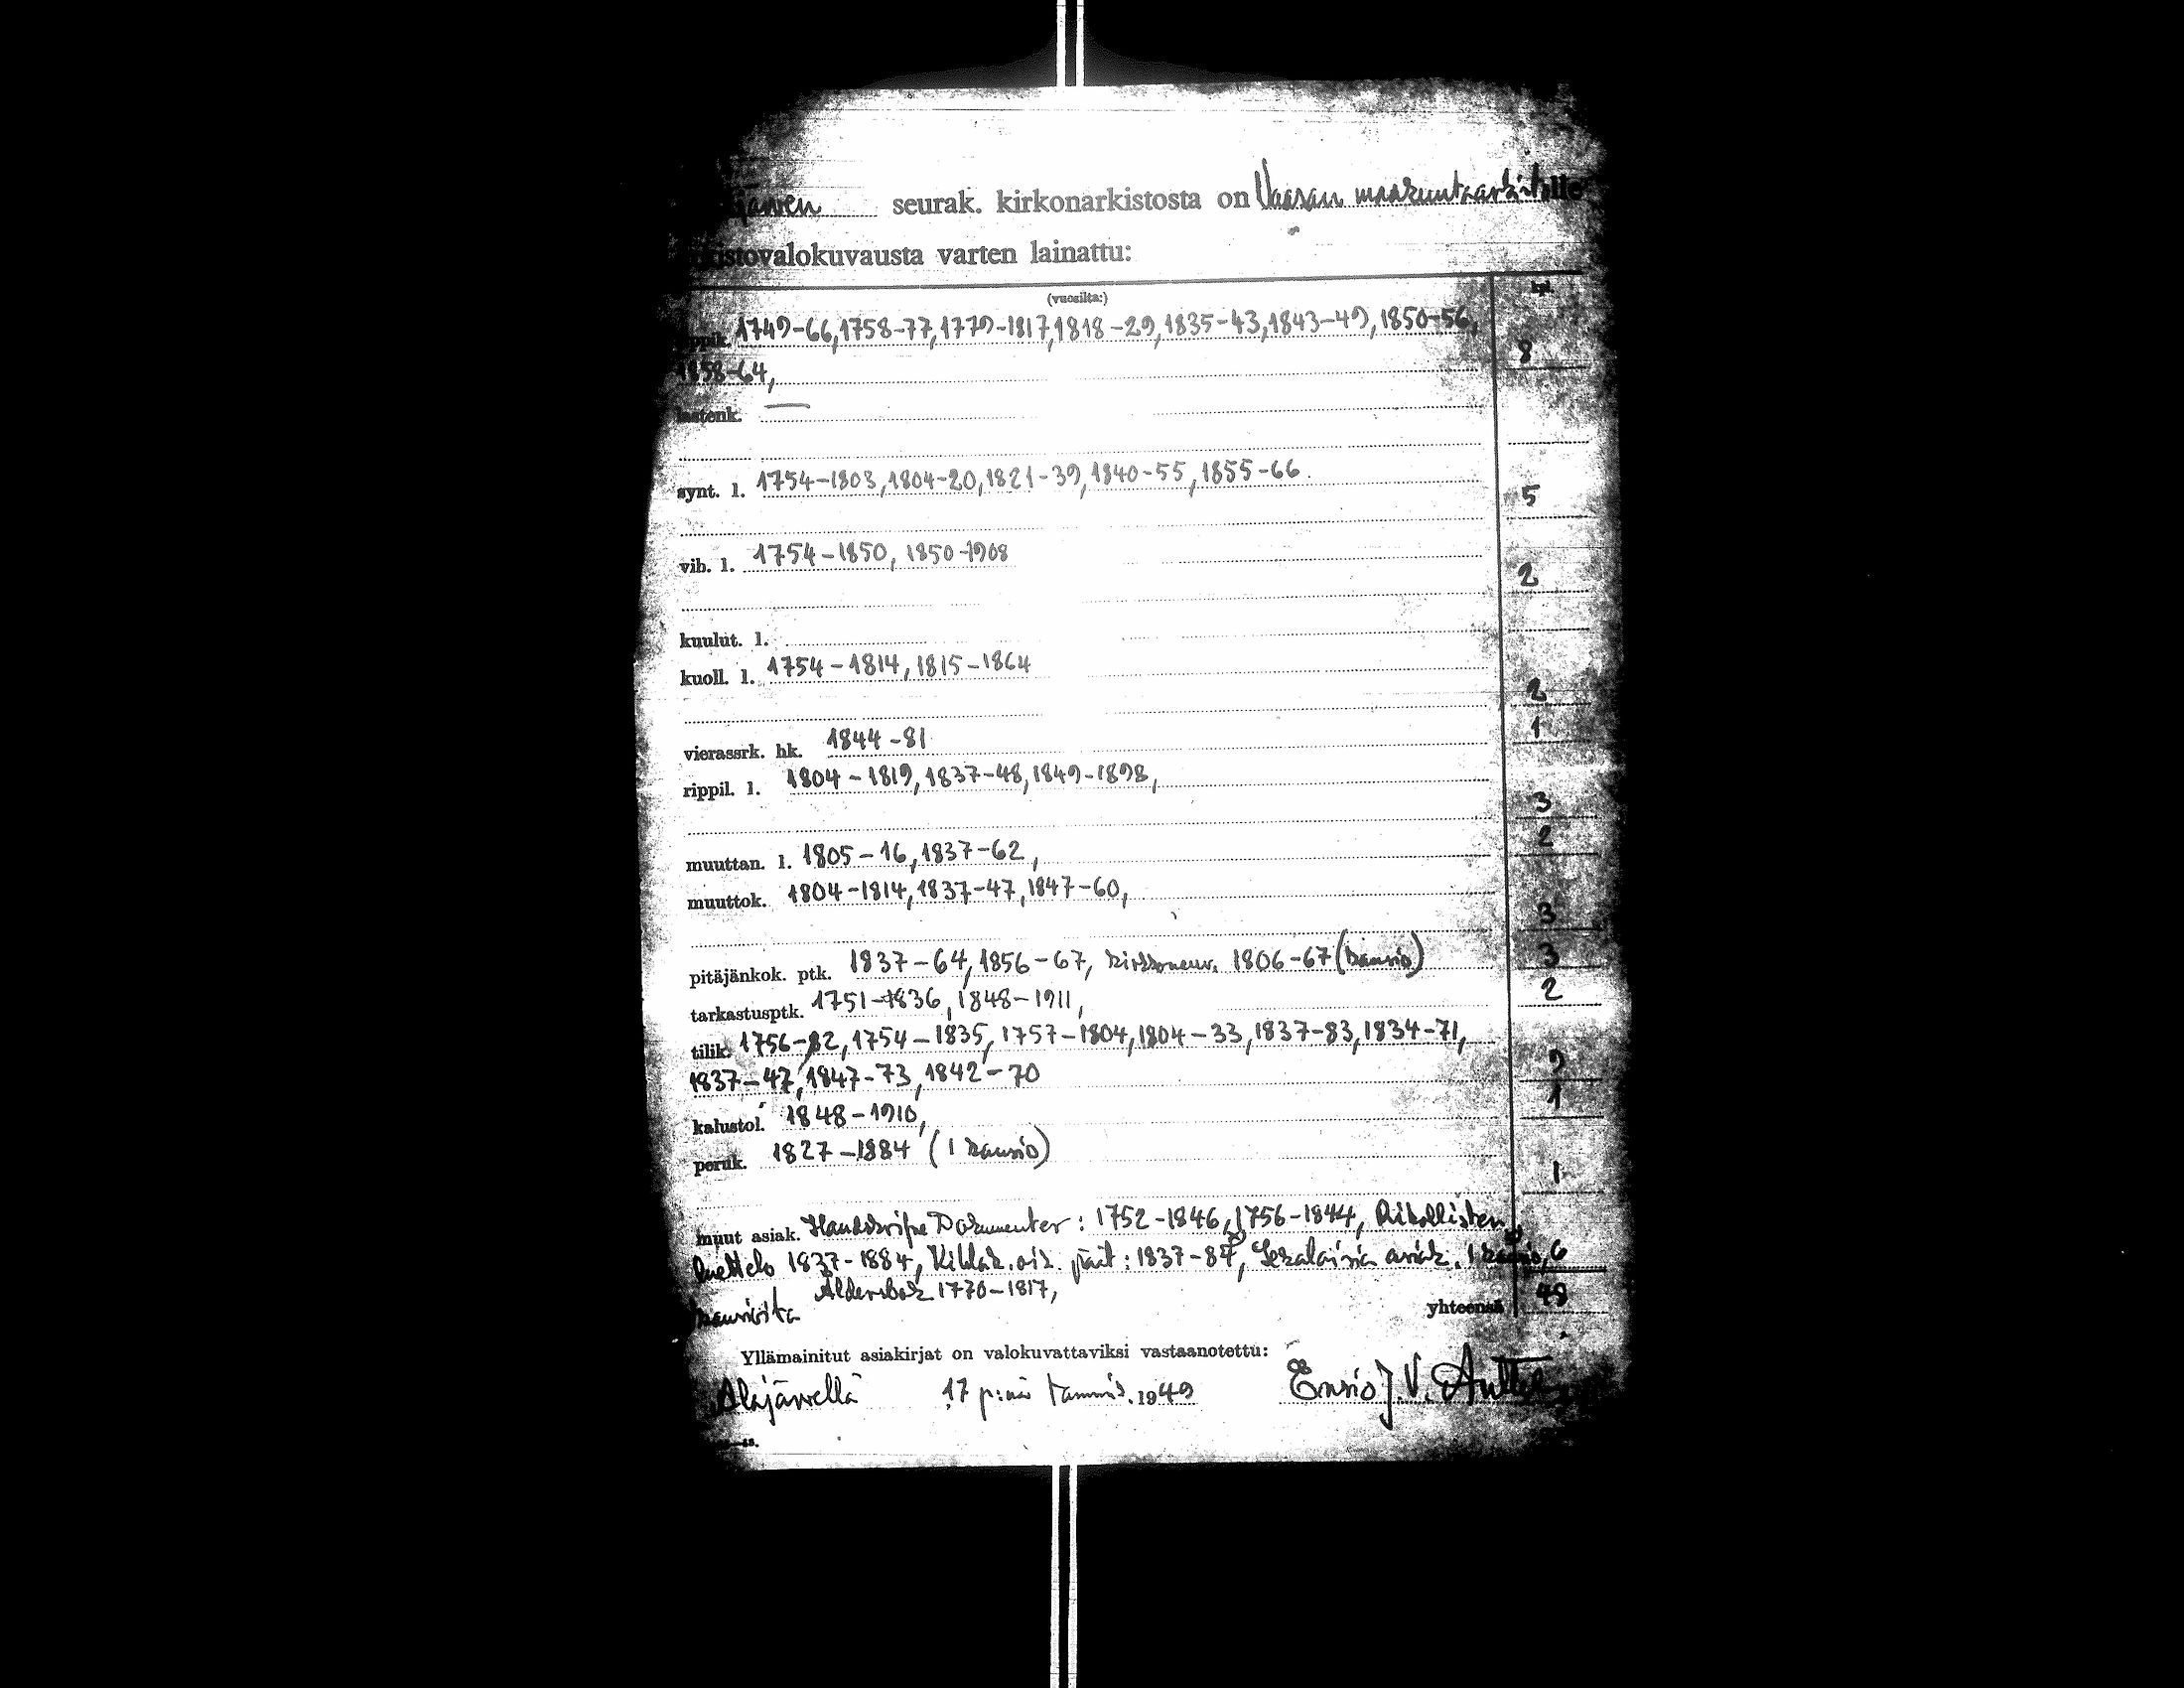 järven seurak. kirkonarkistosta on Vaasan maakuntaarkistolle
kistovalokuvausta varten lainattu:
(vuosilta:) kpl.
rippik. 1749-66, 1758-77, 1779-1817, 1818-29, 1835-43, 1843-49, 1850-56,
1858-64, 8
lastenk. —
synt. l. 1754-1803, 1804-20, 1821-39, 1840-55, 1855-66. 5
vih. l. 1754-1850, 1850-1908 2
kuulut. l.
kuoll. l. 1754-1814, 1815-1864 2
vierassrk. hk. 1844-81 1
rippil. l. 1804-1819, 1837-48, 1849-1898, 3
muuttan. l. 1805-16, 1837-62, 2
muuttok. 1804-1814, 1837-47, 1847-60, 3
pitäjänkok. ptk. 1837-64, 1856-67, kirkkoneuv. 1806-67 (kansio) 3
tarkastusptk. 1751-1836, 1848-1911, 2
tilik. 1756-82, 1754-1835, 1757-1804, 1804-33, 1837-83, 1834-71,
1837-47, 1847-73, 1842-70 9
kalustol. 1848-1910, 1
peruk. 1827-1884 (1 kansio) 1
muut asiak. Handskrifne Dokumenter: 1752-1846, 1756-1844, Rikollisten
luettelo 1837-1884, Kihlak. oik. päät: 1837-87, Sekalaisia asiak. 1 kansio, 6
kansiota Åldersbok 1770-1817,
yhteensä 48
Yllämainitut asiakirjat on valokuvattaviksi vastaanotettu:
Alajärvellä 17 p:nä tammik. 1949 Ensio J. V. Anttila